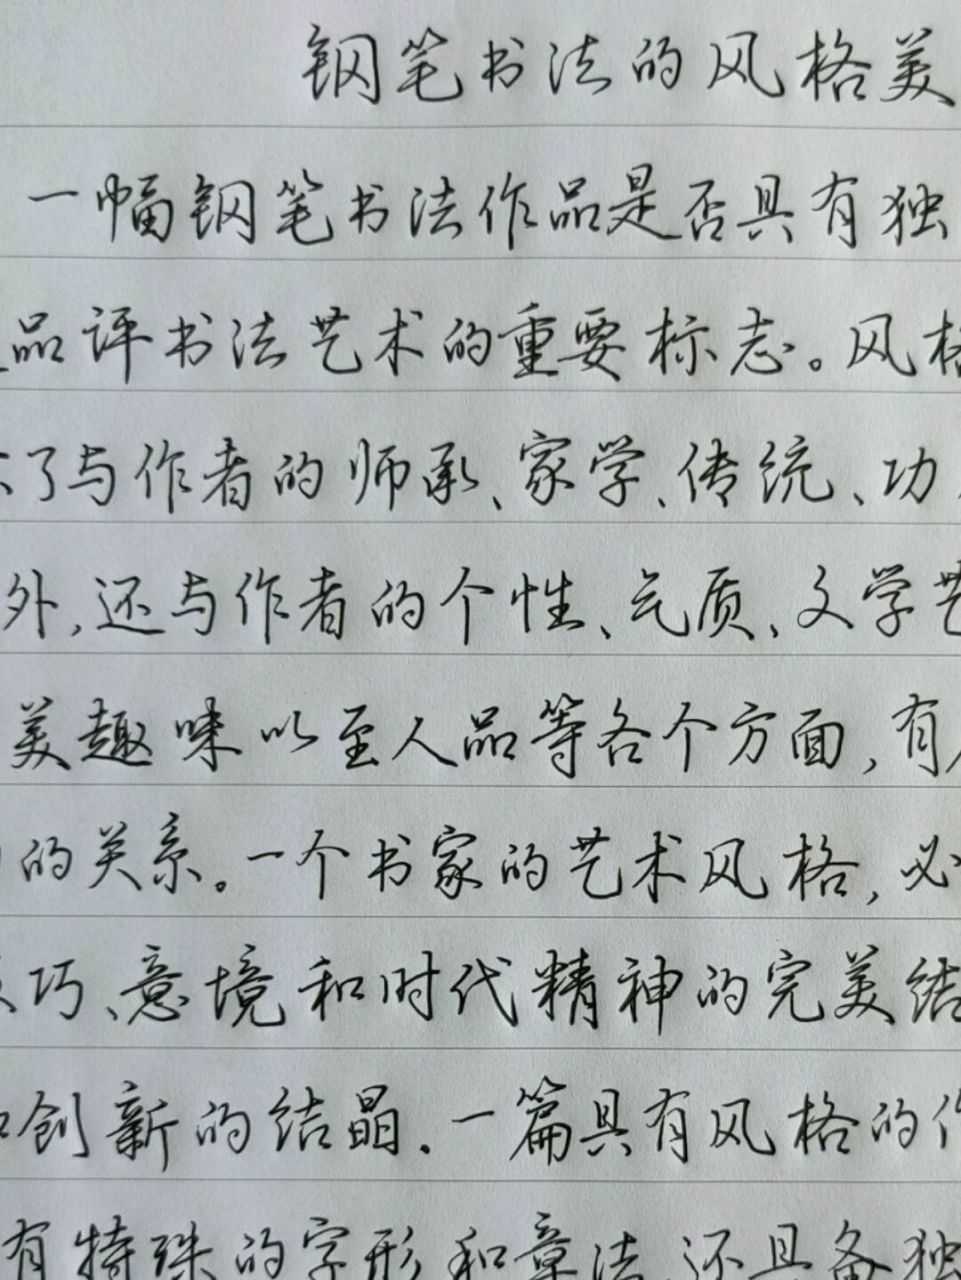 钢笔书法的风格美
一幅钢笔书法作品是否具有独
品评书法艺术的重要标志。风格
了与作者的师承、家学、传统、功
外,还与作者的个性、气质、文学艺
美趣味以至人品等各个方面,有
的关系。一个书家的艺术风格,必
巧、意境和时代精神的完美结
和创新的结晶.一篇具有风格的作
有特殊的字形和章法,还具备独